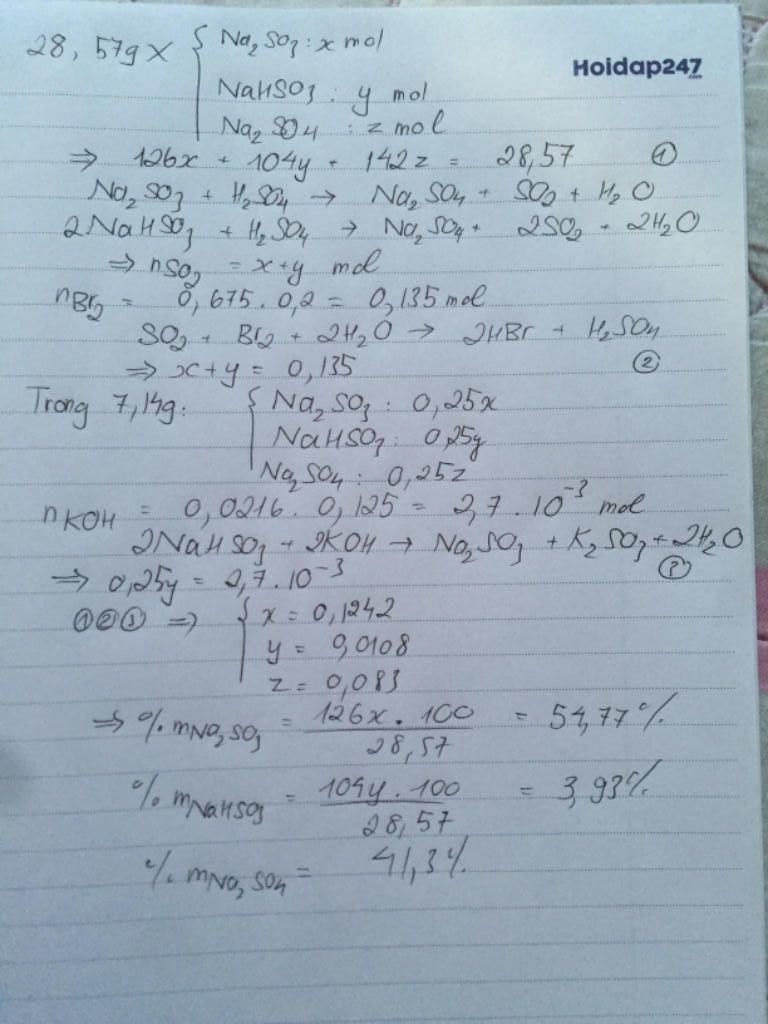 28,57g X { Na2SO3 : x mol
Hoidap247
.com
NaHSO3 : y mol
Na2SO4 : z mol
⇒ 126x + 104y + 142z = 28,57 ①
Na2SO3 + H2SO4 → Na2SO4 + SO2 + H2O
2NaHSO3 + H2SO4 → Na2SO4 + 2SO2 + 2H2O
⇒ nSO2 = x+y mol
nBr2 = 0,675. 0,2 = 0,135 mol
SO2 + Br2 + 2H2O → 2HBr + H2SO4
⇒ x+y = 0,135 ②
Trong 7,14g: { Na2SO3 : 0,25x
NaHSO3 : 0,25y
Na2SO4 : 0,25z
nKOH = 0,0216. 0,125 = 2,7.10^-3 mol
2NaHSO3 + 2KOH → Na2SO3 + K2SO3 + 2H2O
⇒ 0,25y = 2,7.10^-3 ③
①②③ ⇒ { x = 0,1242
y = 0,0108
z = 0,083
⇒ % mNa2SO3 = 126x . 100 / 28,57 = 54,77%
% mNaHSO3 = 104y . 100 / 28,57 = 3,93%
% mNa2SO4 = 41,3%